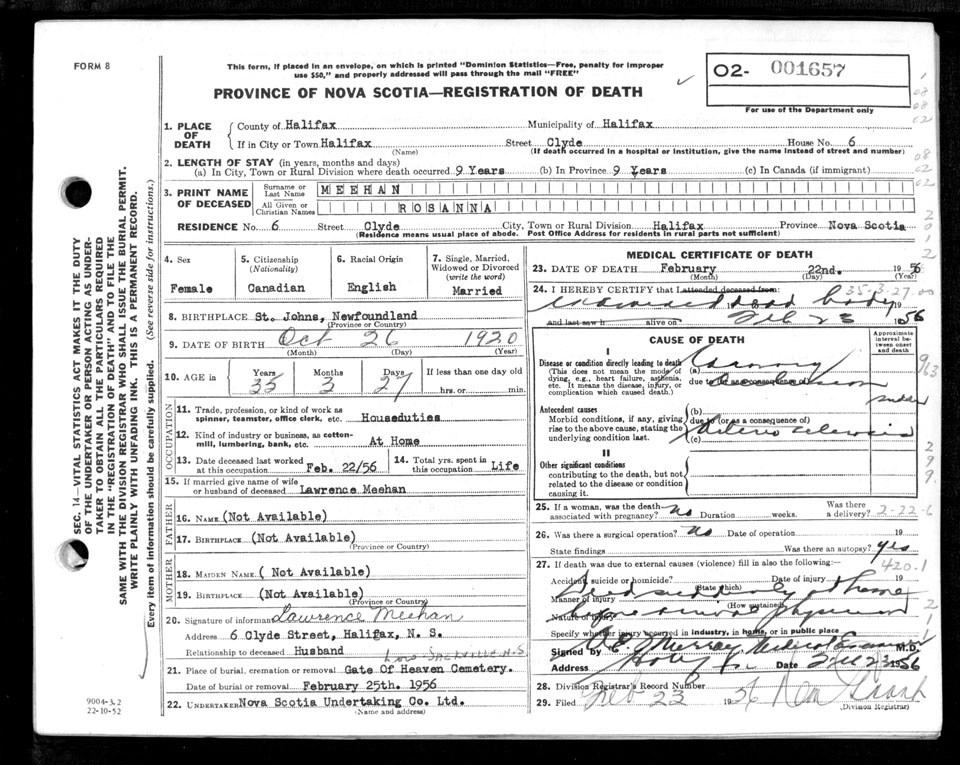 FORM 8
This form, if placed in an envelope, on which is printed "Dominion Statistics—Free, penalty for improper
use $50," and properly addressed will pass through the mail "FREE"
PROVINCE OF NOVA SCOTIA—REGISTRATION OF DEATH
02- 001657
For use of the Department only
1. PLACE OF DEATH
County of Halifax Municipality of Halifax
If in City or Town Halifax Street Clyde House No. 6
(Name) (If death occurred in a hospital or institution, give the name instead of street and number)
2. LENGTH OF STAY (in years, months and days)
(a) In City, Town or Rural Division where death occurred 9 Years (b) In Province 9 Years (c) In Canada (if immigrant)
3. PRINT NAME OF DECEASED
Surname or Last Name MEEHAN
All Given or Christian Names ROSANNA
RESIDENCE No. 6 Street Clyde City, Town or Rural Division Halifax Province Nova Scotia
(Residence means usual place of abode. Post Office Address for residents in rural parts not sufficient)
4. Sex
Female
5. Citizenship
(Nationality)
Canadian
6. Racial Origin
English
7. Single, Married, Widowed or Divorced
(write the word)
Married
8. BIRTHPLACE St. Johns, Newfoundland
(Province or Country)
9. DATE OF BIRTH Oct 26 1920
(Month) (Day) (Year)
10. AGE in
Years Months Days If less than one day old
35 3 27 hrs. or min.
OCCUPATION
11. Trade, profession, or kind of work as
spinner, teamster, office clerk, etc. Houseduties
12. Kind of industry or business, as cotton-
mill, lumbering, bank, etc. At Home
13. Date deceased last worked
at this occupation Feb. 22/56
14. Total yrs. spent in
this occupation Life
15. If married give name of wife
or husband of deceased Lawrence Meehan
FATHER
16. NAME (Not Available)
17. BIRTHPLACE (Not Available)
(Province or Country)
MOTHER
18. MAIDEN NAME ( Not Available)
19. BIRTHPLACE (Not Available)
(Province or Country)
20. Signature of informant Lawrence Meehan
Address 6 Clyde Street, Halifax, N. S.
Relationship to deceased Husband
Low. SACKVILLE N.S.
21. Place of burial, cremation or removal Gate Of Heaven Cemetery.
Date of burial or removal February 25th. 1956
22. UNDERTAKER Nova Scotia Undertaking Co. Ltd.
(Name and address)
MEDICAL CERTIFICATE OF DEATH
23. DATE OF DEATH February 22nd. 1956
(Month) (Day) (Year)
24. I HEREBY CERTIFY that I attended deceased from:
35-3-27.00
examined dead body 19
and last saw h alive on Feb 23 1956
CAUSE OF DEATH
Approximate interval between onset and death
I
Disease or condition directly leading to death
(This does not mean the mode of
dying, e.g., heart failure, asthenia,
etc. It means the disease, injury, or
complication which caused death.)
(a) Coronary
due to (or as a consequence of)
occlusion
sudden
Antecedent causes
Morbid conditions, if any, giving
rise to the above cause, stating the
underlying condition last.
(b)
due to (or as a consequence of)
Arterio sclerosis
(c)
II
Other significant conditions
contributing to the death, but not
related to the disease or condition
causing it.
25. If a woman, was the death
associated with pregnancy? No Duration weeks.
Was there
a delivery? 2-22-6
26. Was there a surgical operation? No Date of operation 19
State findings Was there an autopsy? Yes
27. If death was due to external causes (violence) fill in also the following:
420.1
Accident, suicide or homicide? Date of injury 19
(State which)
Died suddenly at home
Manner of injury
(How sustained)
before arrival physician
Nature of injury
Specify whether injury occurred in industry, in home, or in public place
Signed by Murray Medical Examiner M.D.
Address Date Feb 23 1956
28. Division Registrar's Record Number
29. Filed Feb 23 1956
(Division Registrar)
SEC. 14—VITAL STATISTICS ACT MAKES IT THE DUTY
OF THE UNDERTAKER OR PERSON ACTING AS UNDER-
TAKER TO OBTAIN ALL THE PARTICULARS REQUIRED
IN THE "REGISTRATION OF DEATH" AND TO FILE THE
SAME WITH THE DIVISION REGISTRAR WHO SHALL ISSUE THE BURIAL PERMIT.
WRITE PLAINLY WITH UNFADING INK. THIS IS A PERMANENT RECORD.
Every item of information should be carefully supplied. (See reverse side for instructions.)
9004-3.2
22-10-52